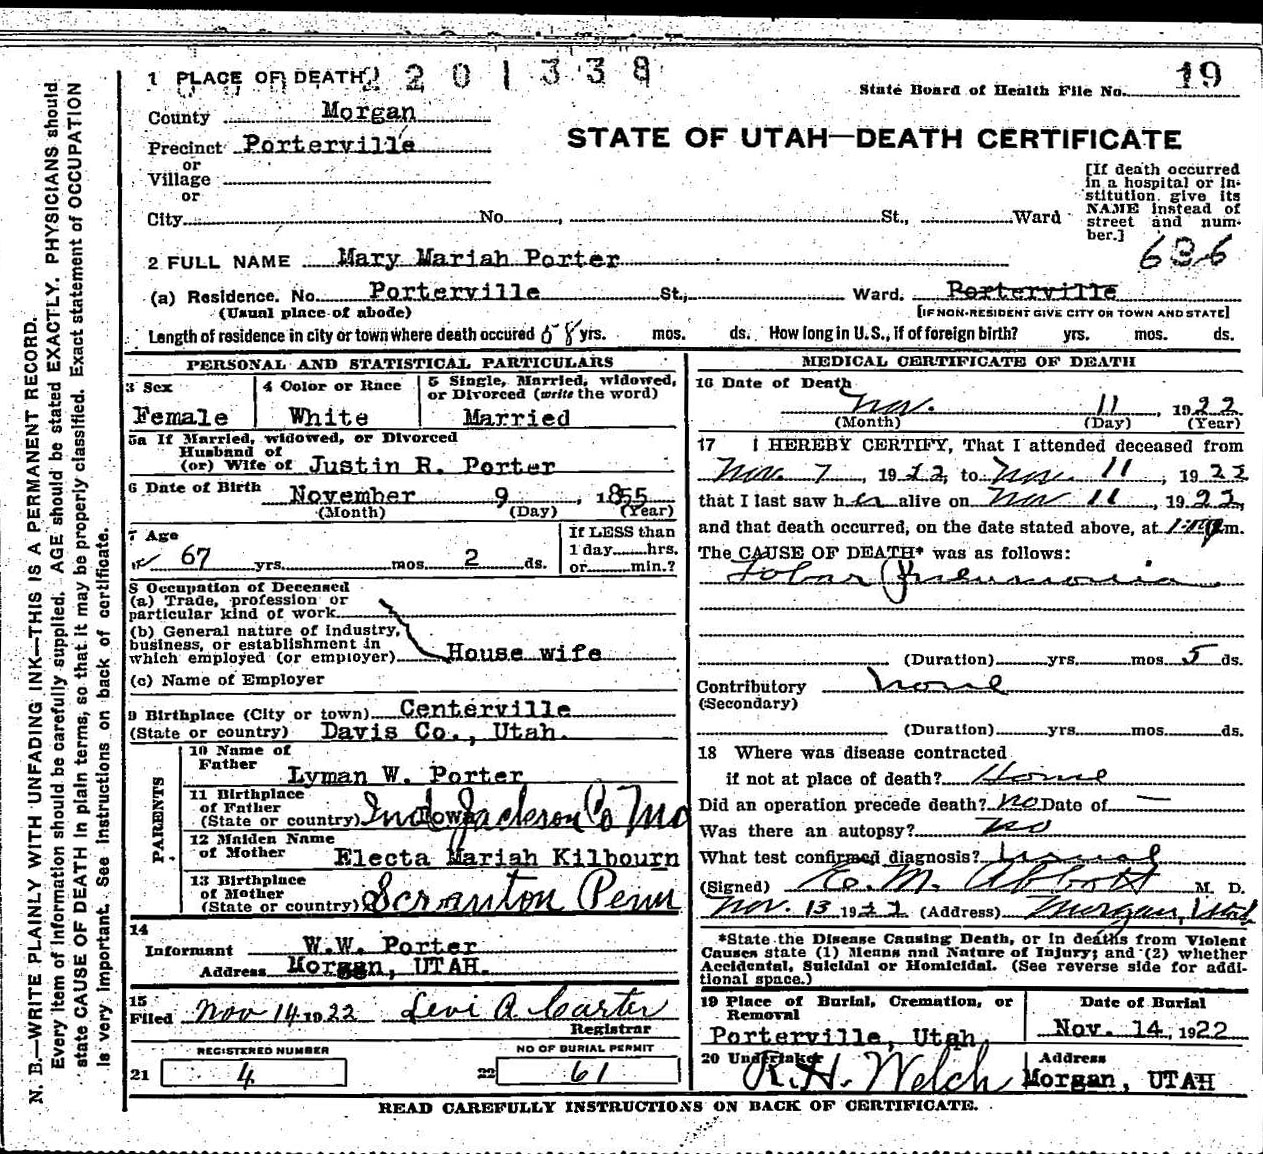 1 PLACE OF DEATH
2201338
State Board of Health File No. 19
County Morgan
Precinct Porterville
or
Village
or
City No. , St., Ward
STATE OF UTAH—DEATH CERTIFICATE
[If death occurred
in a hospital or in-
stitution, give its
NAME instead of
street and num-
ber.]
636
2 FULL NAME Mary Mariah Porter
(a) Residence. No. Porterville St., Ward. Porterville
(Usual place of abode) [IF NON-RESIDENT GIVE CITY OR TOWN AND STATE]
Length of residence in city or town where death occured 58 yrs. mos. ds. How long in U.S., if of foreign birth? yrs. mos. ds.
PERSONAL AND STATISTICAL PARTICULARS
3 Sex
Female
4 Color or Race
White
5 Single, Married, widowed,
or Divorced (write the word)
Married
5a If Married, widowed, or Divorced
Husband of
(or) Wife of Justin R. Porter
6 Date of Birth November 9, 1855
(Month) (Day) (Year)
7 Age
67 yrs. mos. 2 ds.
If LESS than
1 day hrs.
or min.?
8 Occupation of Deceased
(a) Trade, profession or
particular kind of work
(b) General nature of industry,
business, or establishment in
which employed (or employer) House wife
(c) Name of Employer
9 Birthplace (City or town) Centerville
(State or country) Davis Co., Utah.
PARENTS
10 Name of
Father Lyman W. Porter
11 Birthplace
of Father
(State or country) Ind Iowa Jackson Co Mo
12 Maiden Name
of Mother Electa Mariah Kilbourn
13 Birthplace
of Mother
(State or country) Scranton Penn
14
Informant W.W. Porter
Address Morgan, UTAH.
15
Filed Nov 14 1922 Levi A. Carter
Registrar
REGISTERED NUMBER
21 4
NO OF BURIAL PERMIT
22 61
MEDICAL CERTIFICATE OF DEATH
16 Date of Death
Nov. 11, 1922
(Month) (Day) (Year)
17 I HEREBY CERTIFY, That I attended deceased from
Nov. 7, 1922, to Nov. 11, 1922
that I last saw her alive on Nov 11, 1922,
and that death occurred, on the date stated above, at m.
The CAUSE OF DEATH* was as follows:
Lobar Pneumonia
(Duration) yrs. mos. 5 ds.
Contributory none
(Secondary)
(Duration) yrs. mos. ds.
18 Where was disease contracted
if not at place of death? Home
Did an operation precede death? no Date of —
Was there an autopsy? no
What test confirmed diagnosis?
(Signed) E. M. Abbott M. D.
Nov. 13 1922 (Address) Morgan, Utah
*State the Disease Causing Death, or in deaths from Violent
Causes state (1) Means and Nature of Injury; and (2) whether
Accidental, Suicidal or Homicidal. (See reverse side for addi-
tional space.)
19 Place of Burial, Cremation, or
Removal
Porterville, Utah,
Date of Burial
Nov. 14, 1922
20 Undertaker
R.H. Welch
Address
Morgan, UTAH
READ CAREFULLY INSTRUCTIONS ON BACK OF CERTIFICATE.
N. B.—WRITE PLAINLY WITH UNFADING INK—THIS IS A PERMANENT RECORD.
Every item of information should be carefully supplied. AGE should be stated EXACTLY. PHYSICIANS should
state CAUSE OF DEATH in plain terms, so that it may be properly classified. Exact statement of OCCUPATION
is very important. See instructions on back of certificate.